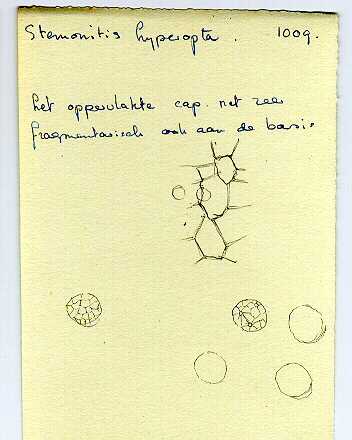 Stemonitis hyperopta. 1009.
het oppervlakte cap. net zeer
fragmentarisch ook aan de basis